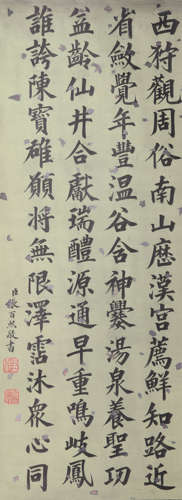 西狩觀周俗南山歷漢宮薦鮮知路近
省斂覺年豐溫谷含神爨湯泉養聖功
益齡仙井合獻瑞醴源通早重鳴岐鳳
誰誇陳寶雄願將無限澤霑沐衆心同
臣張百熙敬書